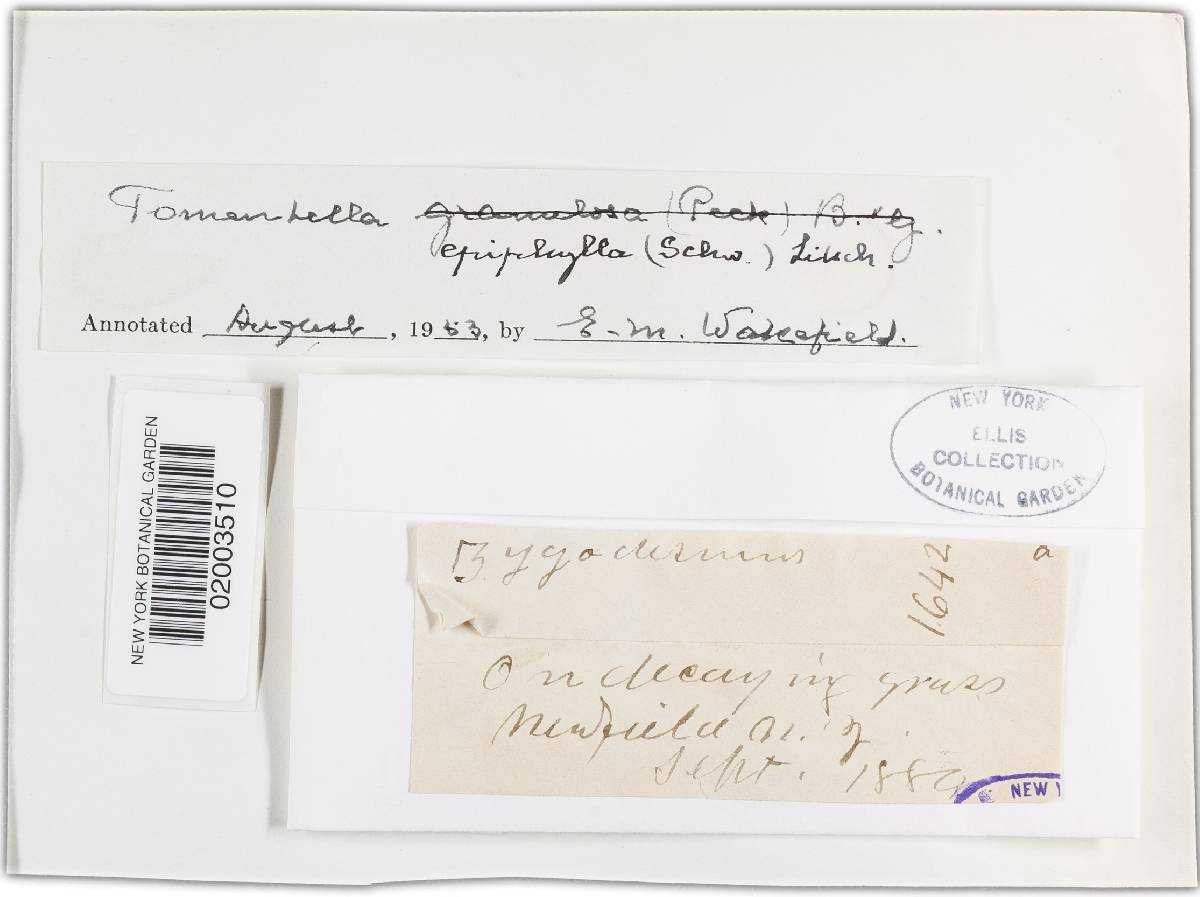 Tomentella granulosa (Peck) B. & G.
epiphylla (Schw.) Litsch.
Annotated August, 1953, by E. M. Wakefield.
NEW YORK
ELLIS
COLLECTION
BOTANICAL GARDEN
NEW YORK BOTANICAL GARDEN
02003510
Zygodesmus
1642
a
On decaying grass
Newfield N. J.
Sept. 188
NEW Y